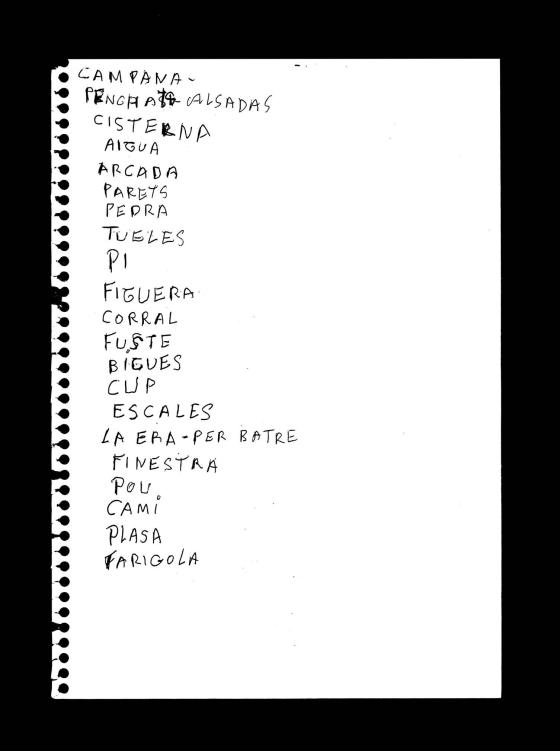 CAMPANA-
CALSADAS
CISTERNA
AIGUA
ARCADA
PARETS
PEDRA
TUELES
PI
FIGUERA
CORRAL
FUSTE
BIGUES
CUP
ESCALES
LA ERA-PER BATRE
FINESTRA
POU
CAMI
PLASA
FARIGOLA